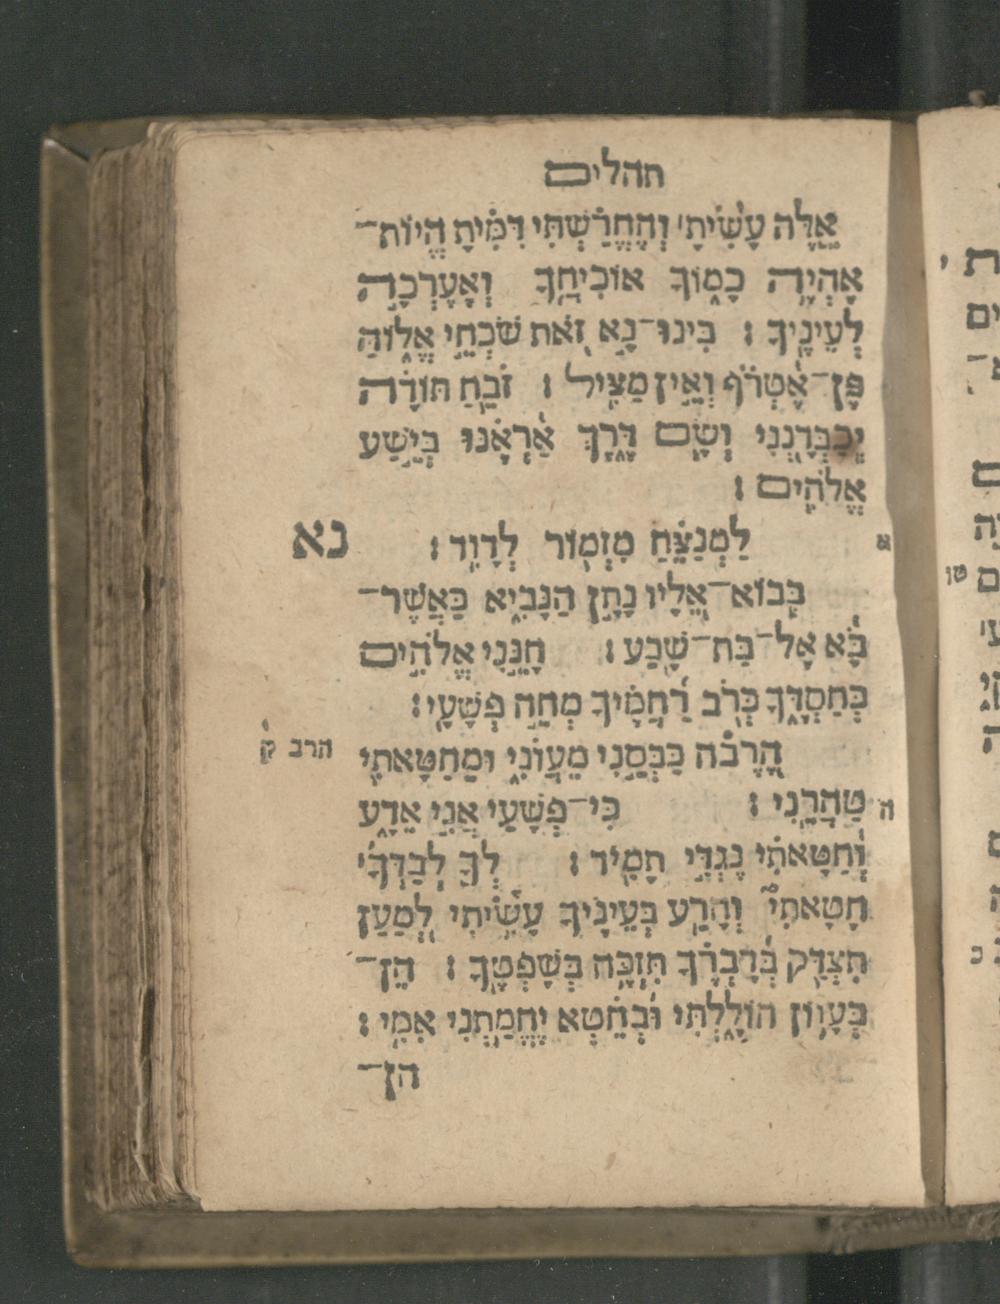 תהלים
אֵלֶּה עָשִׂיתָ וְהֶחֱרַשְׁתִּי דִּמִּיתָ הֱיוֹת־
אֶהְיֶה כָמוֹךָ אוֹכִיחֲךָ וְאֶעֶרְכָה
לְעֵינֶיךָ : בִּינוּ־נָא זֹאת שֹׁכְחֵי אֱלוֹהַּ
פֶּן־אֶטְרֹף וְאֵין מַצִּיל : זֹבֵחַ תּוֹדָה
יְכַבְּדָנְנִי וְשָׂם דֶּרֶךְ אַרְאֶנּוּ בְּיֵשַׁע
אֱלֹהִים :
א לַמְנַצֵּחַ מִזְמוֹר לְדָוִד : נא
בְּבוֹא־אֵלָיו נָתָן הַנָּבִיא כַּאֲשֶׁר־
בָּא אֶל־בַּת־שָׁבַע : חָנֵּנִי אֱלֹהִים
כְּחַסְדֶּךָ כְּרֹב רַחֲמֶיךָ מְחֵה פְשָׁעָי :
הֶרֶבה כַּבְּסֵנִי מֵעֲוֹנִי וּמֵחַטָּאתִי הרב ק
ה טַהֲרֵנִי : כִּי־פְשָׁעַי אֲנִי אֵדָע
וְחַטָּאתִי נֶגְדִּי תָמִיד : לְךָ לְבַדְּךָ
חָטָאתִי וְהָרַע בְּעֵינֶיךָ עָשִׂיתִי לְמַעַן
תִּצְדַּק בְּדָבְרֶךָ תִּזְכֶּה בְשָׁפְטֶךָ : הֵן־
בְּעָווֹן חוֹלָלְתִּי וּבְחֵטְא יֶחֱמַתְנִי אִמִּי :
הן־